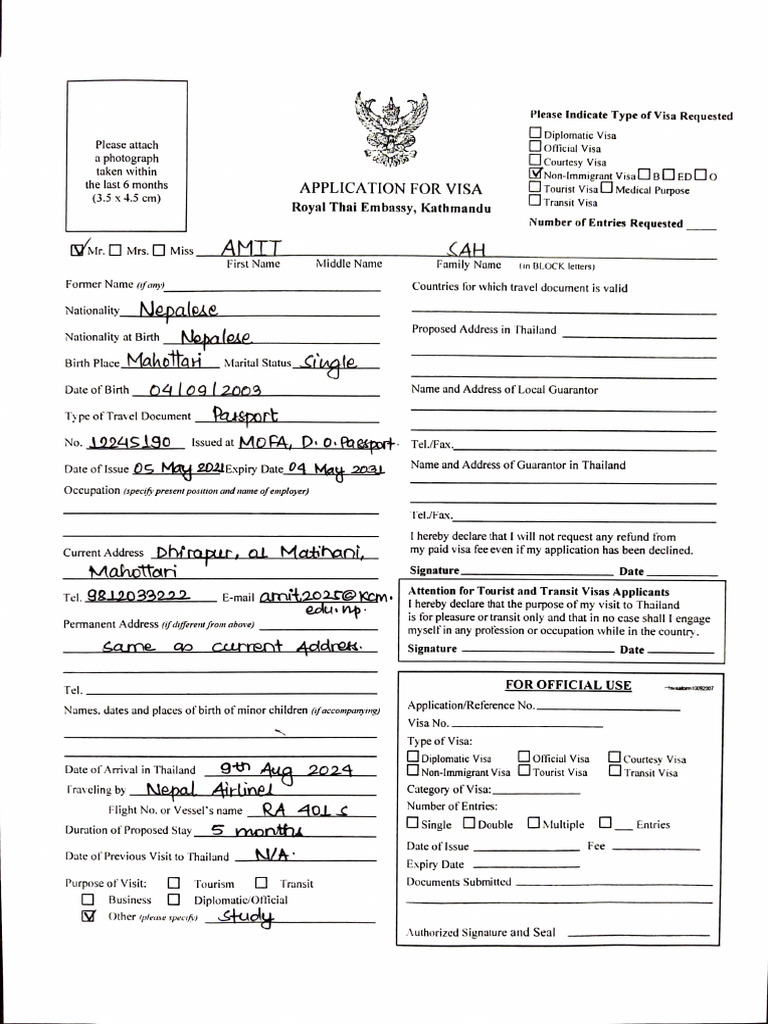 Please attach
a photograph
taken within
the last 6 months
(3.5 x 4.5 cm)
APPLICATION FOR VISA
Royal Thai Embassy, Kathmandu
Please Indicate Type of Visa Requested
Diplomatic Visa
Official Visa
Courtesy Visa
Non-Immigrant Visa B ED O
Tourist Visa Medical Purpose
Transit Visa
Number of Entries Requested
Mr. Mrs. Miss AMIT SAH
First Name Middle Name Family Name (in BLOCK letters)
Former Name (if any)
Nationality Nepalese
Nationality at Birth Nepalese
Birth Place Mahottari Marital Status Single
Date of Birth 04/09/2003
Type of Travel Document Passport
No. 12245190 Issued at MOFA, D.O.Passport.
Date of Issue 05 May 2021 Expiry Date 04 May 2031
Occupation (specify present position and name of employer)
Current Address Dhirapur, at Matihani,
Mahottari
Tel. 9812033222 E-mail amit2025@kcm.
edu.np.
Permanent Address (if different from above)
same as current Address.
Tel.
Names, dates and places of birth of minor children (if accompanying)
Date of Arrival in Thailand 9th Aug 2024
Traveling by Nepal Airlines
Flight No. or Vessel's name RA 401 S
Duration of Proposed Stay 5 months
Date of Previous Visit to Thailand N/A.
Purpose of Visit: Tourism Transit
Business Diplomatic/Official
Other (please specify) study
Countries for which travel document is valid
Proposed Address in Thailand
Name and Address of Local Guarantor
Tel./Fax.
Name and Address of Guarantor in Thailand
Tel./Fax.
I hereby declare that I will not request any refund from
my paid visa fee even if my application has been declined.
Signature Date
Attention for Tourist and Transit Visas Applicants
I hereby declare that the purpose of my visit to Thailand
is for pleasure or transit only and that in no case shall I engage
myself in any profession or occupation while in the country.
Signature Date
FOR OFFICIAL USE
Application/Reference No.
Visa No.
Type of Visa:
Diplomatic Visa Official Visa Courtesy Visa
Non-Immigrant Visa Tourist Visa Transit Visa
Category of Visa:
Number of Entries:
Single Double Multiple Entries
Date of Issue Fee
Expiry Date
Documents Submitted
Authorized Signature and Seal